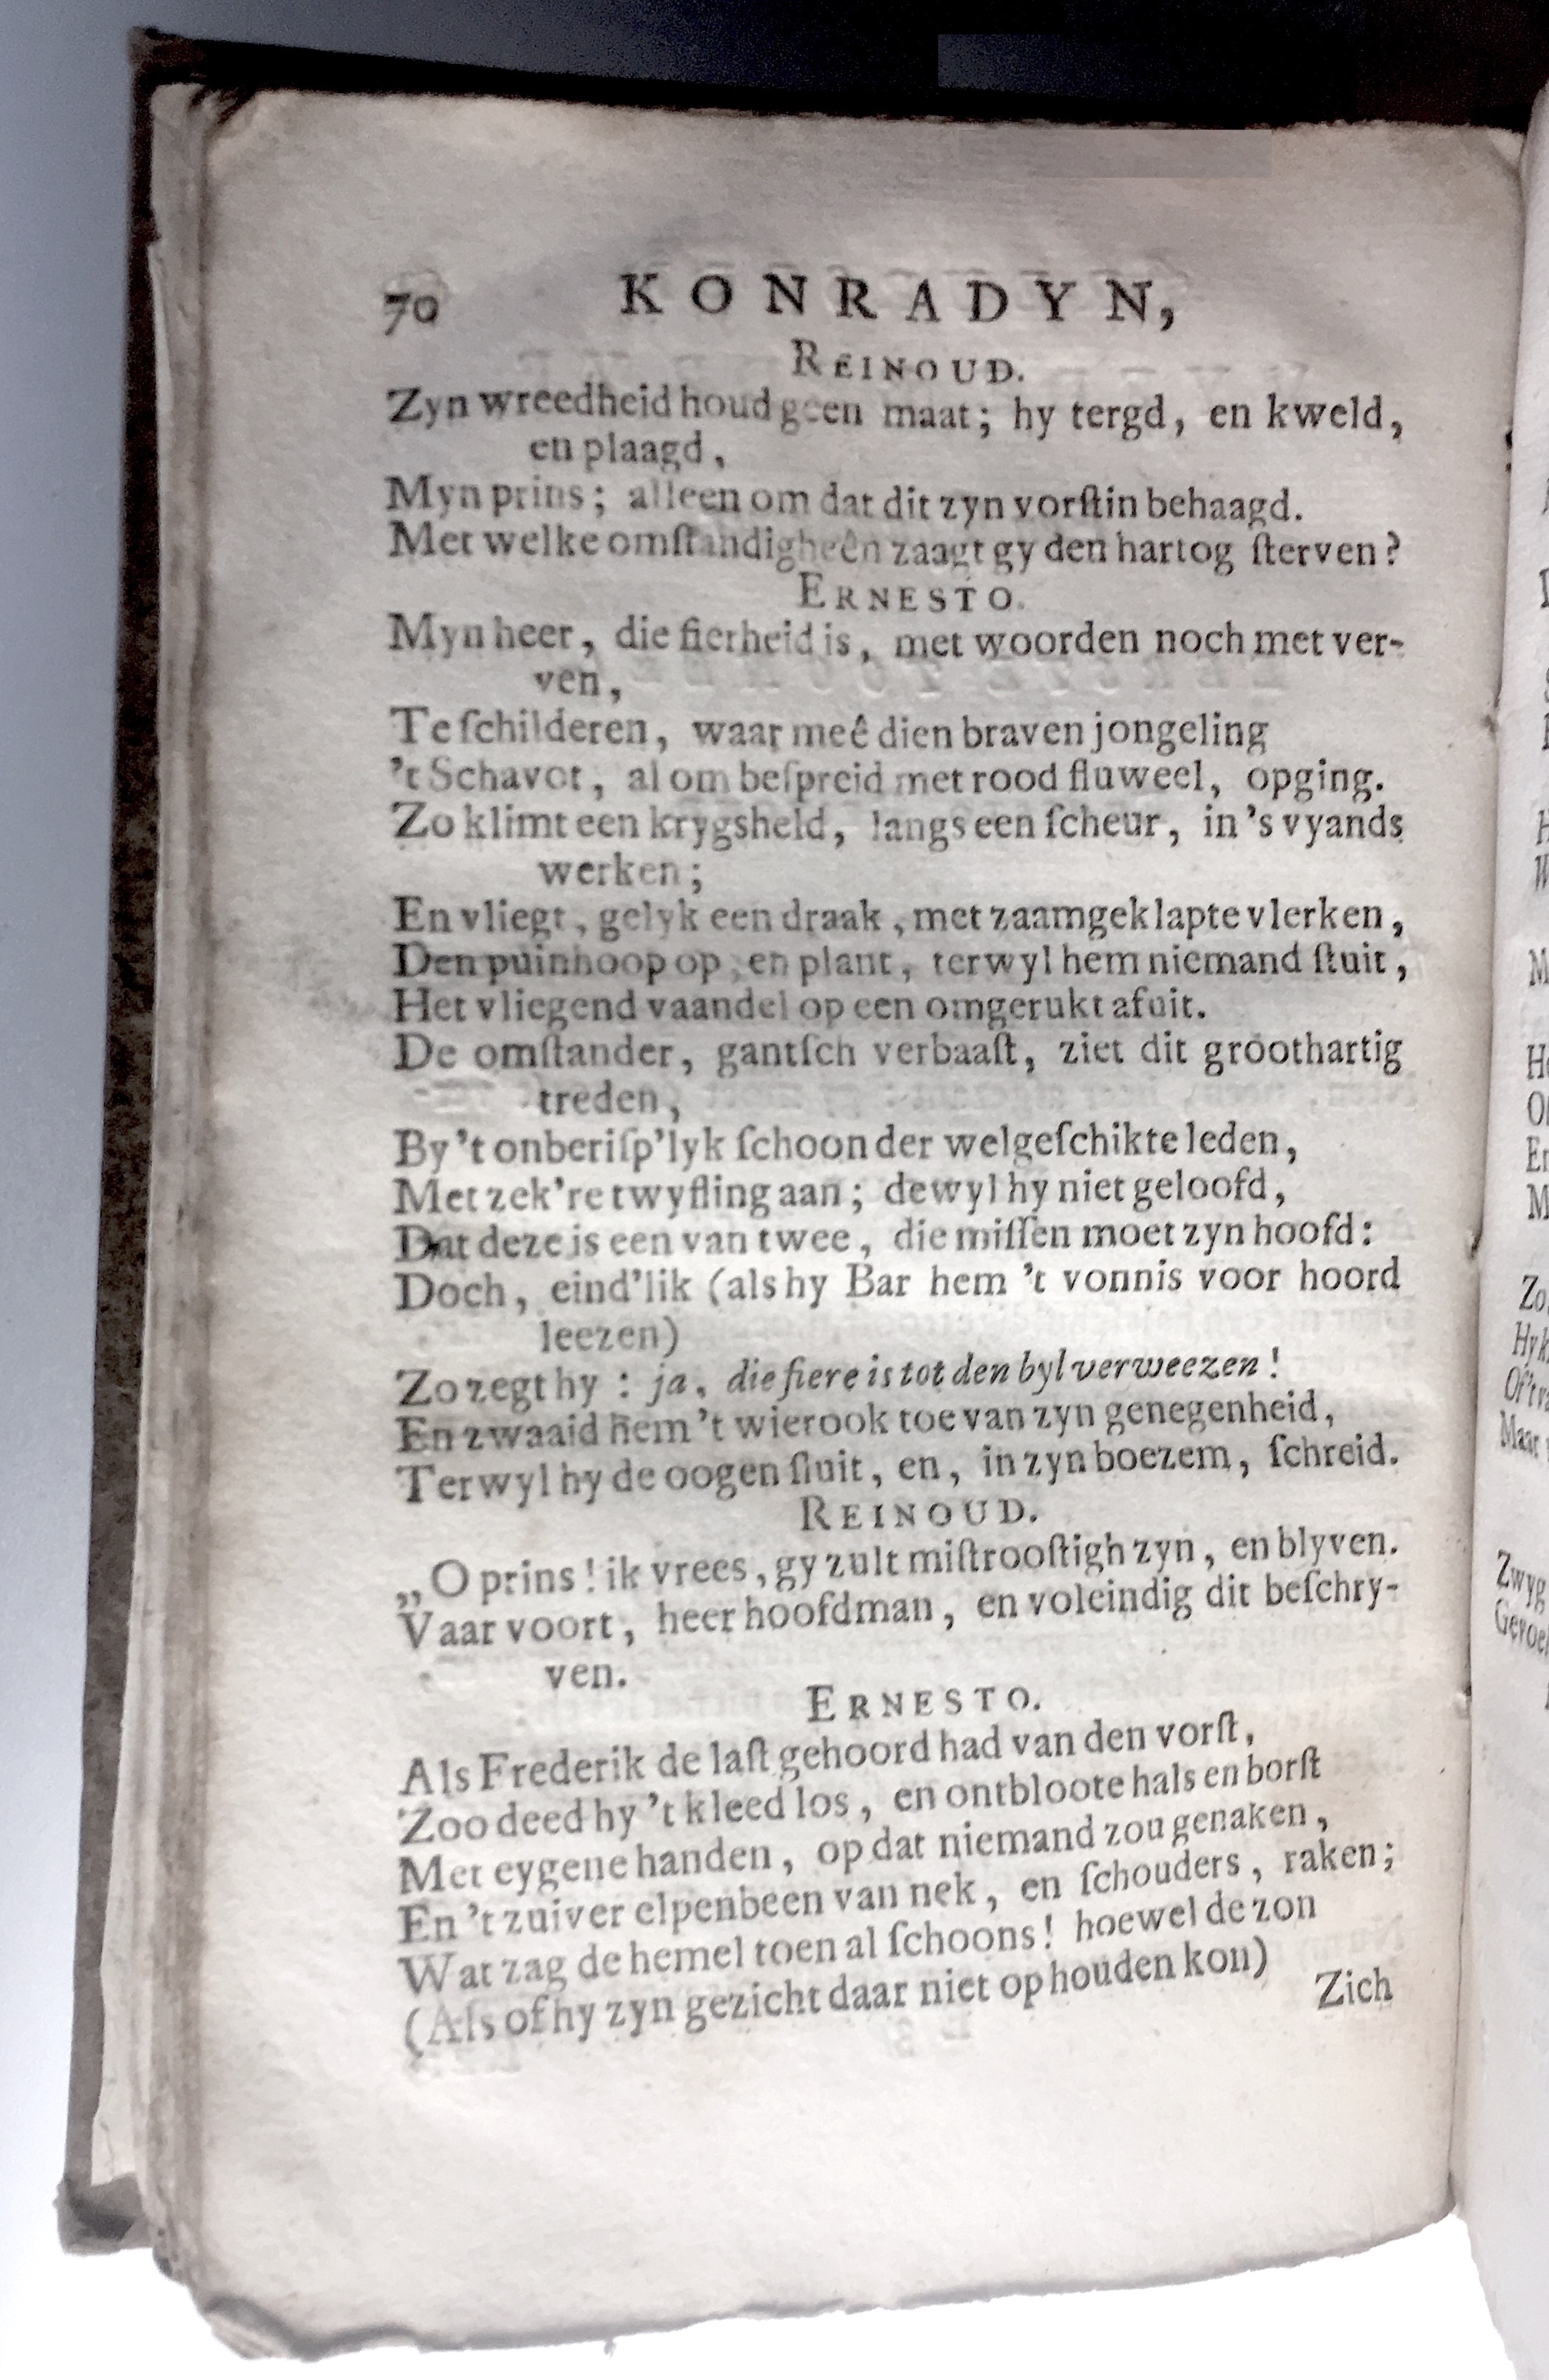 70 KONRADYN,
REINOUD.
Zyn wreedheid houd geen maat; hy tergd, en kweld,
en plaagd,
Myn prins; alleen om dat dit zyn vorſtin behaagd.
Met welke omſtandigheên zaagt gy den hartog ſterven?
ERNESTO.
Myn heer, die fierheid is, met woorden noch met ver-
ven,
Te ſchilderen, waar meê dien braven jongeling
't Schavot, al om beſpreid met rood fluweel, opging.
Zo klimt een krygsheld, langs een ſcheur, in 's vyands
werken;
En vliegt, gelyk een draak, met zaamgeklapte vlerken,
Den puinhoop op, en plant, terwyl hem niemand ſtuit,
Het vliegend vaandel op een omgerukt afuit.
De omſtander, gantſch verbaaſt, ziet dit groothartig
treden,
By 't onberiſp'lyk ſchoon der welgeſchikte leden,
Met zek're twyfling aan; dewyl hy niet geloofd,
Dat deze is een van twee, die miſſen moet zyn hoofd:
Doch, eind'lik (als hy Bar hem 't vonnis voor hoord
leezen)
Zo zegt hy: ja, die fiere is tot den byl verweezen!
En zwaaid hem 't wierook toe van zyn genegenheid,
Terwyl hy de oogen ſluit, en, in zyn boezem, ſchreid.
REINOUD.
„O prins! ik vrees, gy zult miſtrooſtigh zyn, en blyven.
Vaar voort, heer hoofdman, en voleindig dit beſchry-
ven.
ERNESTO.
Als Frederik de laſt gehoord had van den vorſt,
Zoo deed hy 't kleed los, en ontbloote hals en borſt
Met eygene handen, op dat niemand zou genaken,
En 't zuiver elpenbeen van nek, en ſchouders, raken;
Wat zag de hemel toen al ſchoons! hoewel de zon
(Als of hy zyn gezicht daar niet op houden kon)
Zich